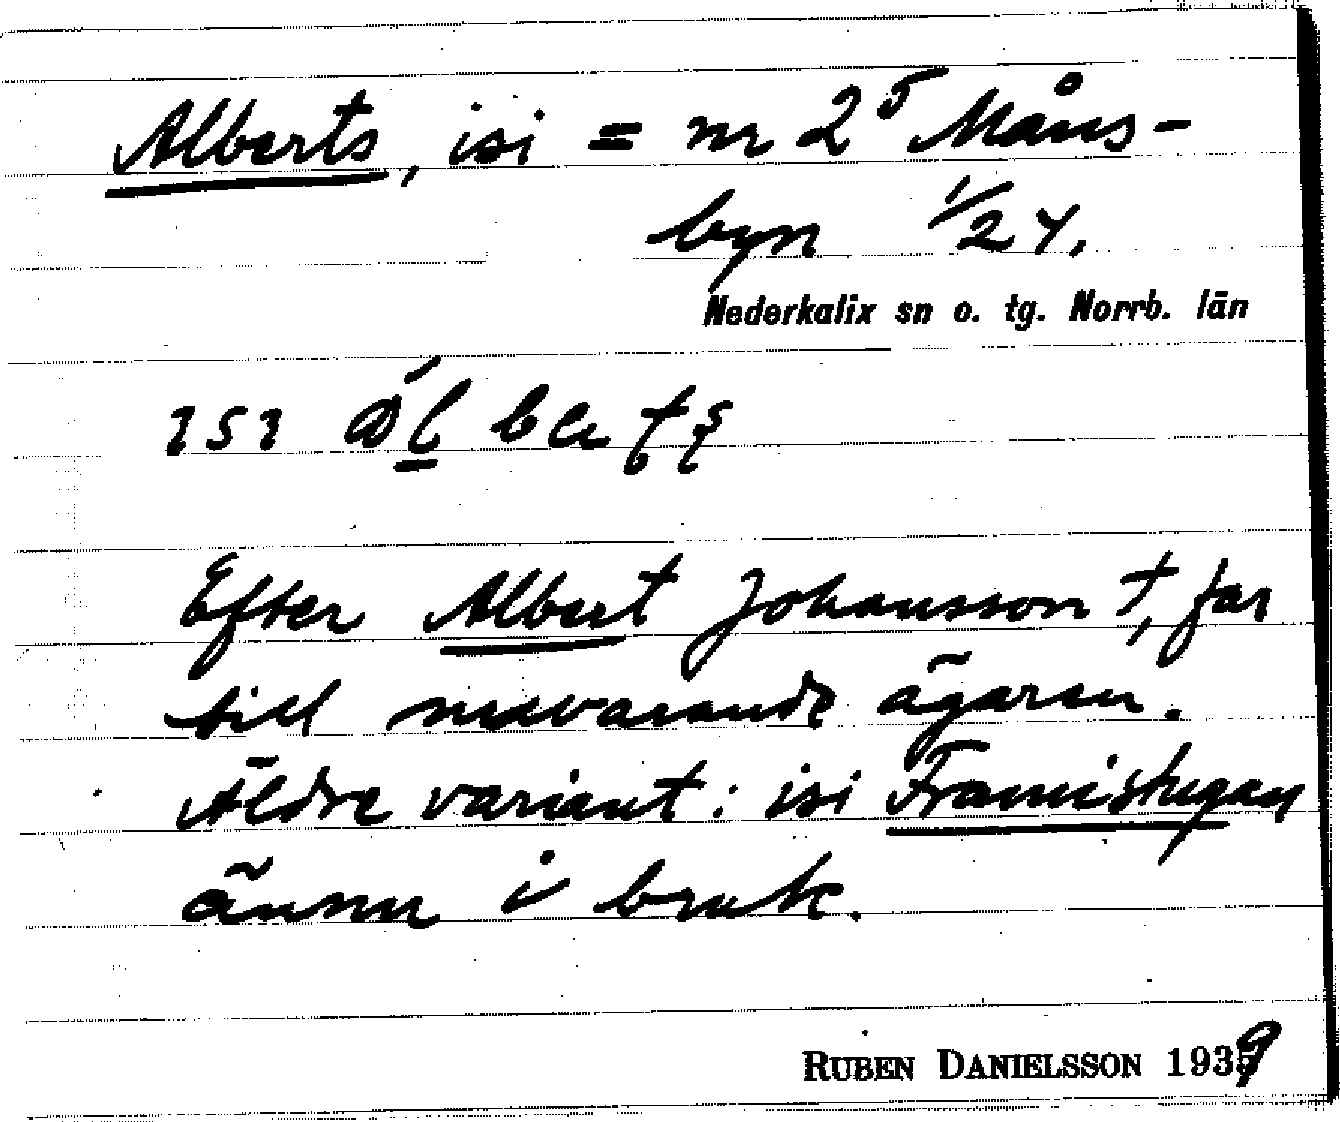 Alberts, isi = nr 2⁵ Måns-
byn 1/24.
Nederkalix sn o. tg. Norrb. län
ısı
Efter Albert Johansson †, far
till nuvarande ägaren.
Äldre variant: isi Framistugan
ännu i bruk.
RUBEN DANIELSSON 1939